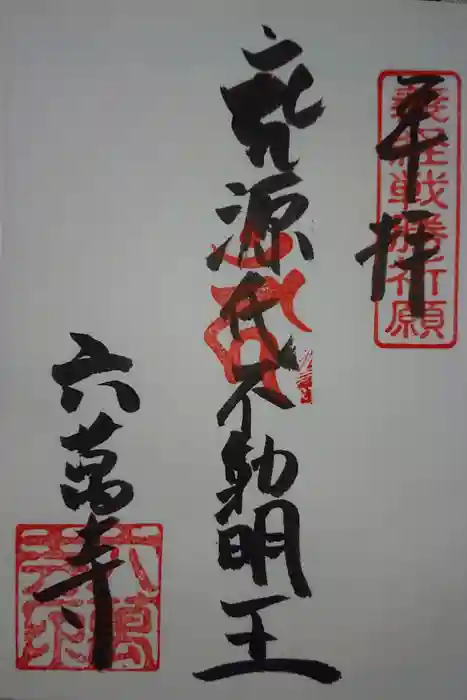 義経戦勝祈願
奉拝
源氏不動明王
六萬寺
六萬寺印